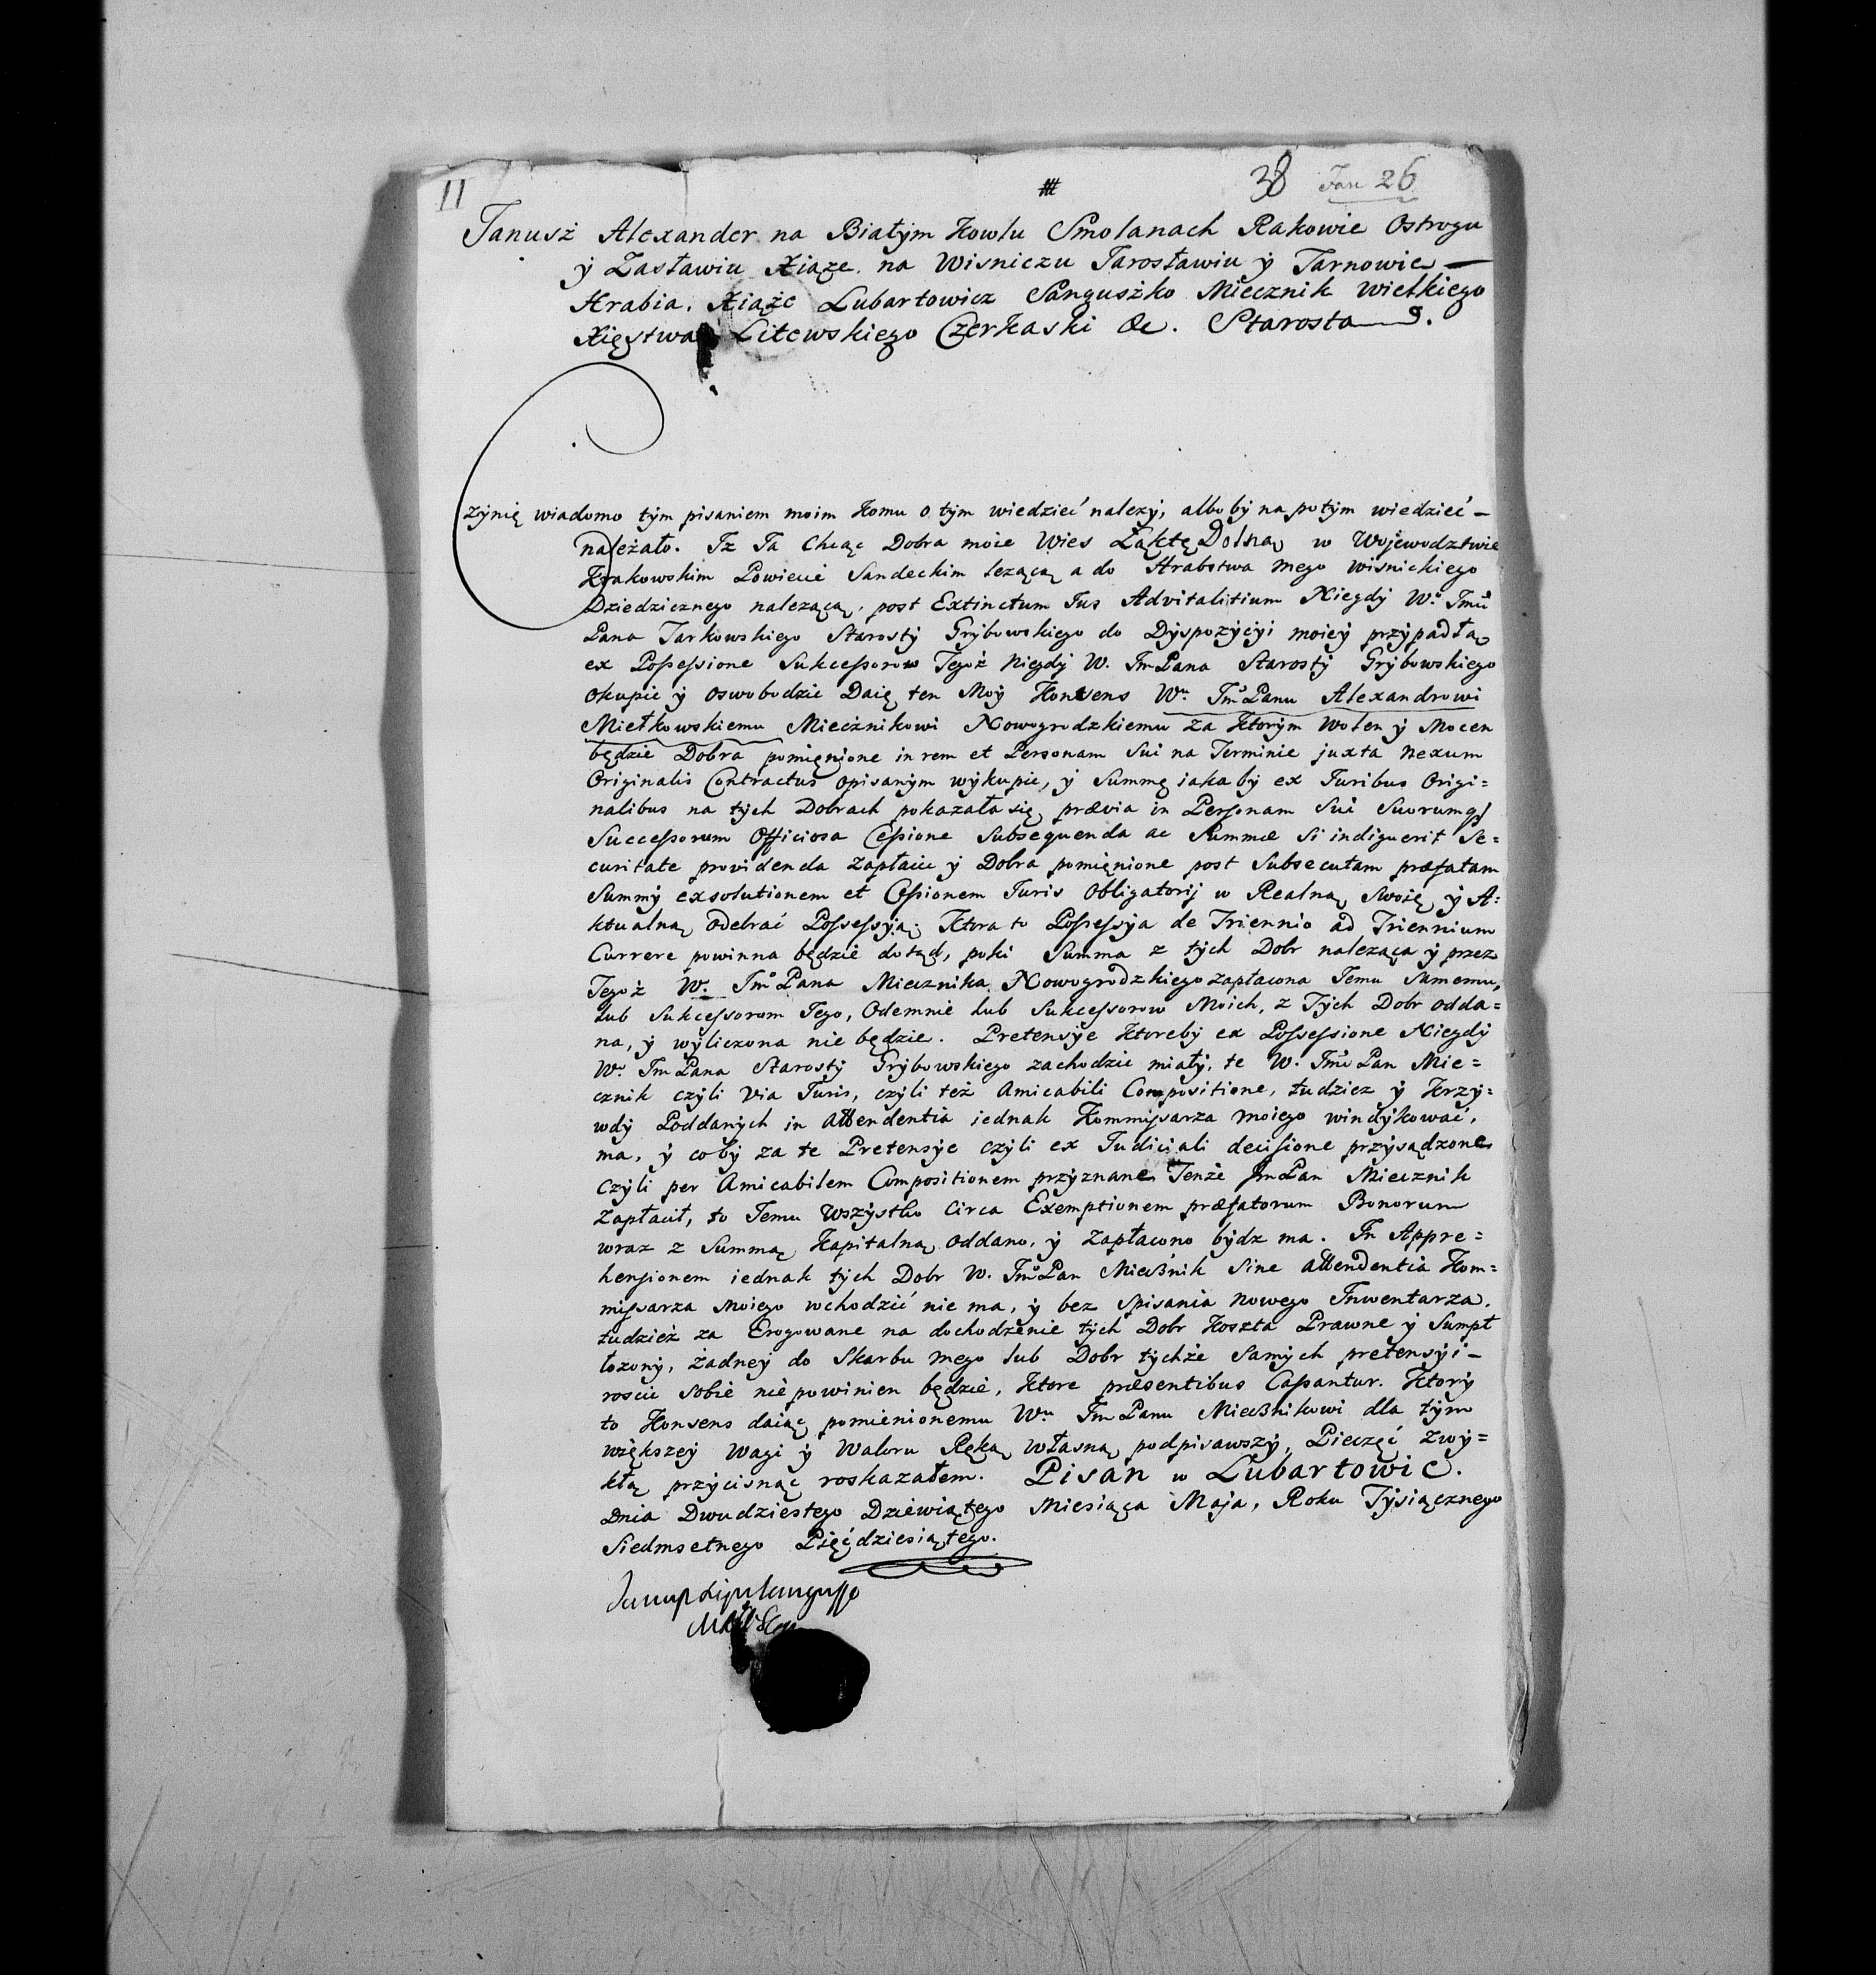 11 38 Jan 26
Janusż Alexander na Białym Kowlu Smolanach Rakowie Ostrogu
ÿ Zasławiu Xiąże na Wisniczu Jarosławiu ÿ Tarnowie
Hrabia. Xiąże Lubartowicz Sangusżko Miecznik Wielkiego
Xięstwa Litewskiego Czerkaski &c. Starosta.
Czÿnię wiadomo tÿm pisaniem moim komu o tÿm wiedzieć nalezÿ, albo bÿ na potÿm wiedzieć
należało. Iz Ja Chcąc Dobra moie Wies Łąktę Dolną w Wojewodztwie
Krakowskim Powiecie Sandeckim lezącą a do Hrabstwa mego Wisnickiego
Dziedzicznego nalezącą, post Extinctum Jus Advitalitium Niegdÿ W° Jmci
Pana Jarkowskiego Starostÿ Grÿbowskiego do Dÿspozÿcÿi moieÿ przÿpadłą
ex Possessione Sukcessorow Tegoż Niegdÿ W. Jm Pana Starostÿ Grÿbowskiego
okupic ÿ oswobodzic Daię ten Moÿ Konsens Wu Jm Panu Alexandrowi
Miełkowskiemu Miecżnikowi Nowogrodzkiemu za ktorÿm wolen ÿ Mocen
będzie Dobra pomięnione in rem et Personam Sui na Terminie juxta nexum
Originalis Contractus opisanÿm wÿkupic, ÿ Summę iaka bÿ ex Juribus Origi=
nalibus na tÿch Dobrach pokazała się, prævia in Personam Sui Suorumq
Successorum Officiosa Cessione Subsequenda ac Summæ Si indiguerit Se=
curitate providenda zapłacic ÿ Dobra pomięnione post Subsecutam præfatam
Summÿ exsolutionem et Cessionem Juris Obligatorij w Realną Swoię ÿ A=
ktualną Odebrać Possessÿą; Ktora to Possessÿa de Triennio ad Triennium
Currere powinna będzie dotąd, poki Summa z tÿch Dobr naleząca ÿ przez
Tegoż W. Jm Pana Miecznika Nowogrodzkiego zapłacona Jemu Samemu,
lub Sukcessorom Jego, Odemnie lub Sukcessorow Moich, z Tÿch Dobr odda=
na, ÿ wÿliczona nie będzie. Pretensÿe ktorebÿ ex Possessione Niegdÿ
W° Jm Pana Starostÿ Grÿbowskiego zachodzic miałÿ, te W. Jm Pan Mie=
cznik czÿli via Juris, czÿli też Amicabili Compositione, tudziez ÿ krzÿ=
wdÿ Poddanÿch in Attendentia iednak Kommissarza moiego windÿkować,
ma, ÿ cobÿ za te Pretensÿe czÿli ex Judiciali decisione przÿsądzone
Czÿli per Amicabilem Compositionem przÿznane Tenże Jm Pan Miecznik
Zapłacił, to Jemu wszÿstko Circa Exemptionem præfatorum Bonorum
wraz z Summą Kapitalną oddano, ÿ Zapłacono bÿdz ma. In Appre=
hensionem iednak tÿch Dobr W. Jm Pan Miecznik Sine Attendentia Kom=
missarza Moiego wchodzić nie ma, ÿ bez spisania nowego Inwentarza.
tudzież za Erogowane na dochodzenie tÿch Dobr Koszta Prawne ÿ Sumpt
łozonÿ, żadneÿ do Skarbu mego lub Dobr tÿchże samÿch pretensÿi
roscic sobie nie powinien będzie, Ktore præsentibus Cassantur. Ktorÿ
to Konsens daiąc pomienionemu Wu Jm Panu Miecznikowi dla tÿm
większeÿ Wagi ÿ Waloru Ręką własną podpisawszÿ, Pieczęć zwÿ=
kłą przÿcisnąc roskazałem. Pisan w Lubartowie.
Dnia Dwudziestego Dziewiątego Miesiąca Maja, Roku Tÿsiącznego
Siedmsetnego Pięćdziesiątego.